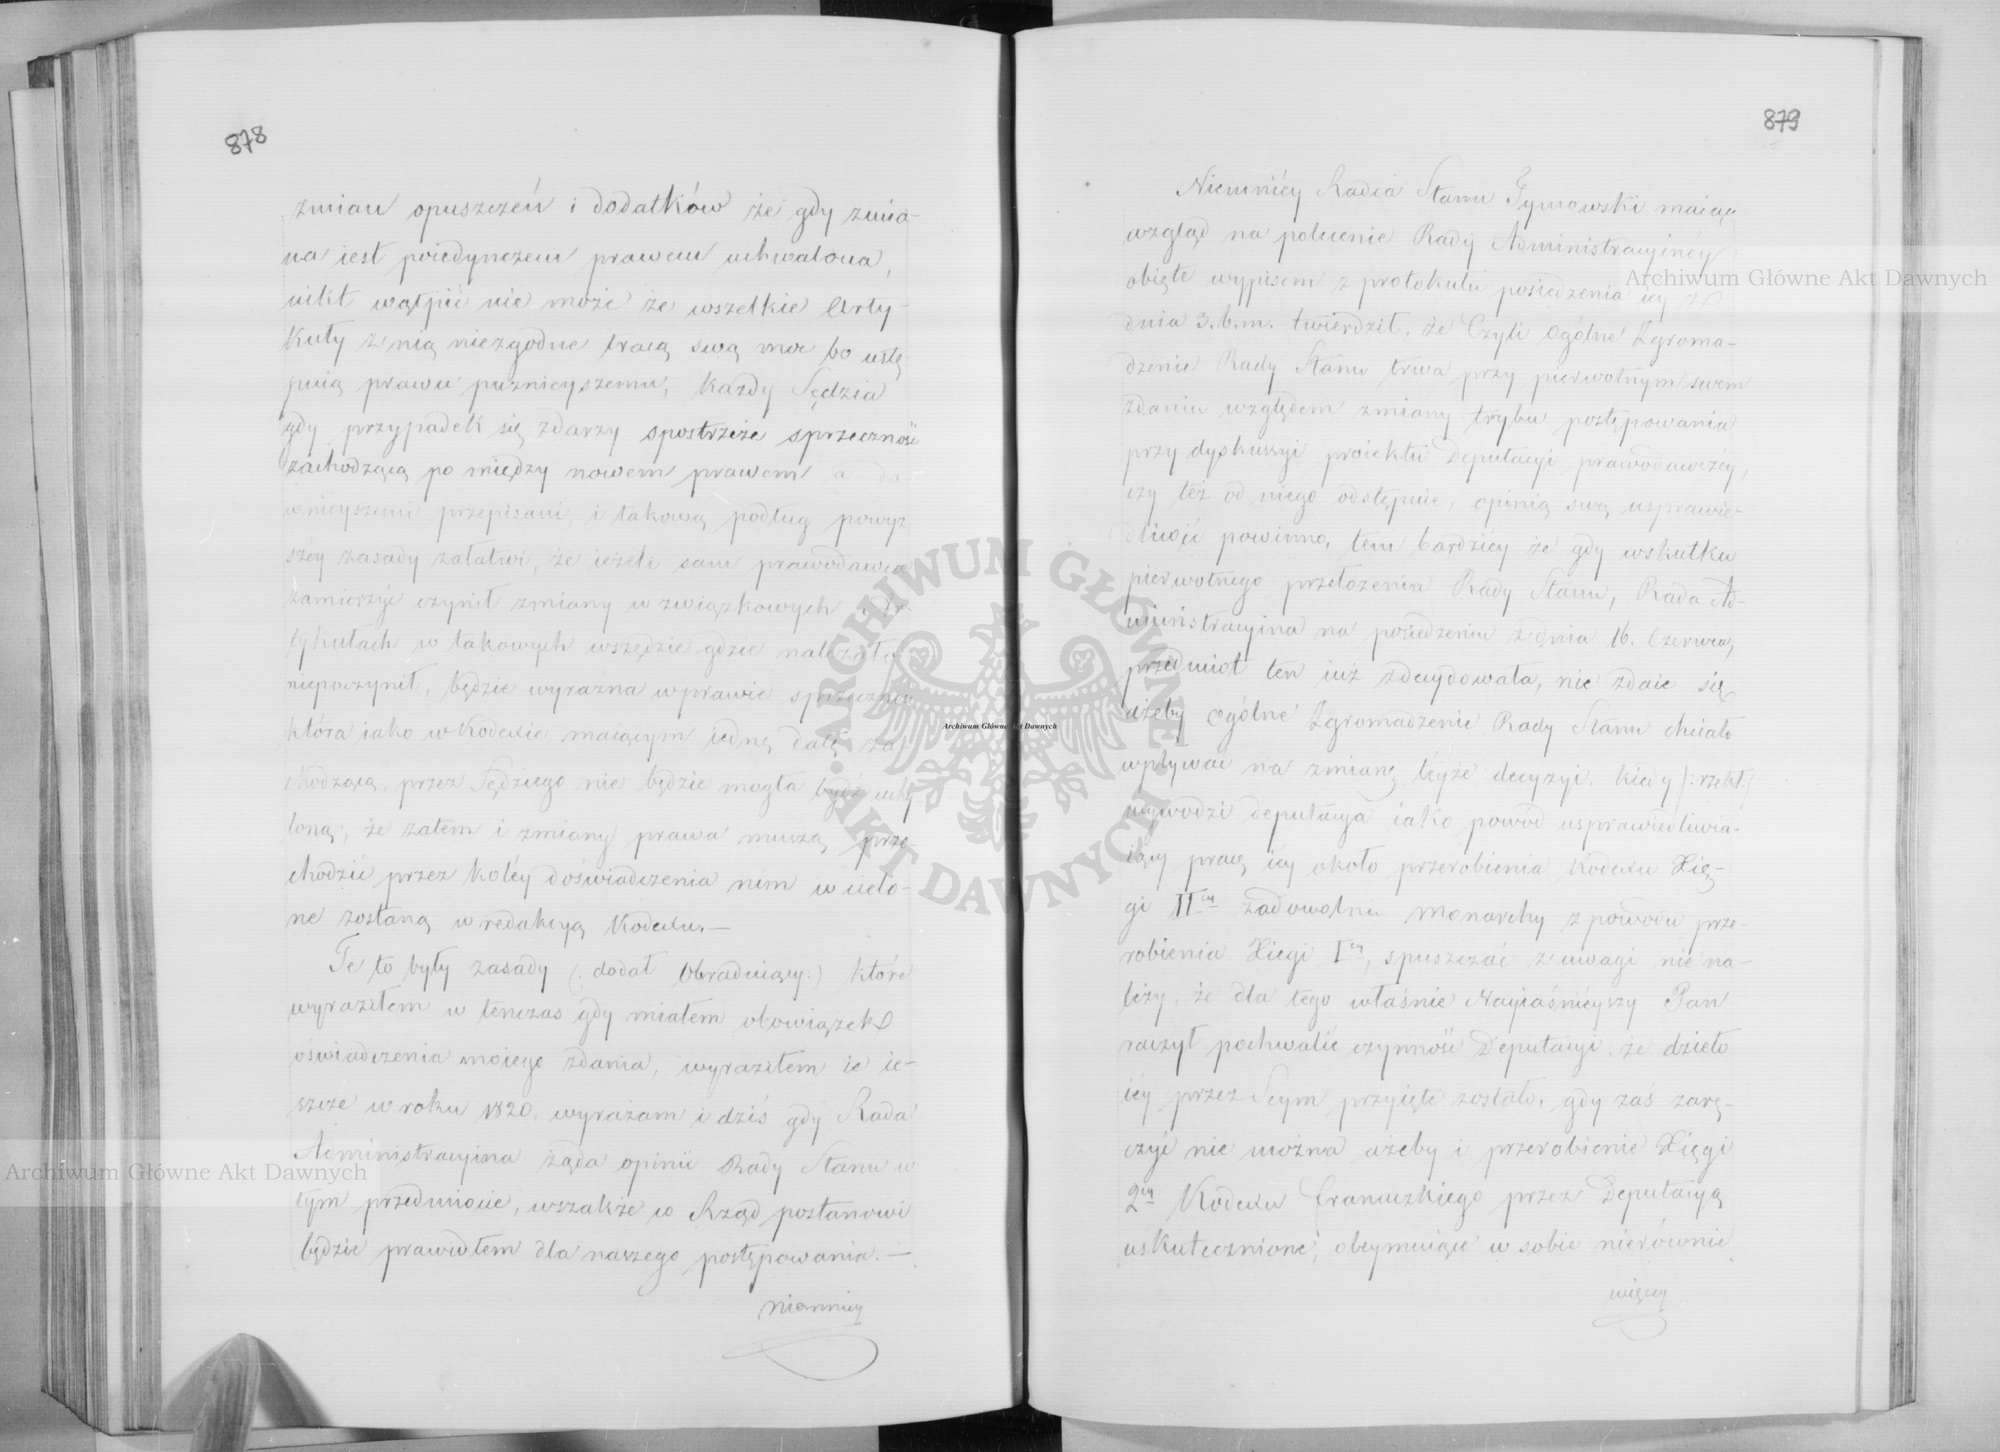 878
zmian opuszczeń i dodatków że gdy zmia-
na iest poiedynczem prawem uchwalona,
nikt wątpić nie może że wszelkie Arty-
kuły z nią niezgodne tracą swą moc bo ustę
puią prawu puznieyszemu, Każdy Sędzia
gdy przypadek się zdarzy spostrzeże sprzeczność
zachodzącą po między nowem prawem a da
wnieyszemi przepisami, i takową podług powyż
széy zasady załatwi, że ieżeli sam prawodawca
zamierzył czynił zmiany w związkowych Ar-
tykułach w takowych wszędzie gdzie należało
niepoczynił, będzie wyraźna w prawie sprzeczność
która iako w Kodexie maiącym iednę datę za-
chodząca, przez Sędziego nie będzie mogła bydź uchy-
loną; że zatem i zmiany prawa muszą prze-
chodzić przez koléy doświadczenia nim wcielo-
ne zostaną w redakcyą Kodexu.—
Te to były zasady (: dodał Obraduiący:) które
wyraziłem w tenczas gdy miałem obowiązek
oświadczenia moiego zdania, wyraziłem ie ie-
szcze w roku 1820. wyrażam i dziś gdy Rada
Administracyina żąda opinii Rady Stanu w
tym przedmiocie, wszakże co Rząd postanowi
będzie prawidłem dla naszego postępowania.—
niemniey
879
Niemniéy Radca Stanu Tymowski maiąc
wzgląd na polecenie Rady Administracyinéy
obięte wypisem z protokułu posiedzenia iey z
dnia 3. b. m. twierdził, że Czyli Ogólne Zgroma-
dzenie Rady Stanu trwa przy pierwotnym swem
zdaniu względem zmiany trybu postępowania
przy dyskussyi proiektu Deputacyi prawodawczéy,
czy też od niego odstępuie, opinią swą usprawie-
dliwić powinno, tem bardziéy że gdy wskutku
pierwotnego przełożenia Rady Stanu, Rada Ad-
ministracyina na posiedzeniu z dnia 16. Czerwca,
przedmiot ten iuż zdecydowała, nie zdaie się
ażeby Ogólne Zgromadzenie Rady Stanu chciało
wpływać na zmianę téyże decyzyi. kiedy (: rzekł:)
wywodzi Deputacya iako powód usprawiedliwia-
iący pracę iéy około przerobienia Kodexu Xię-
gi II<sup>éy</sup> zadowolnie Monarchy z powodu prze-
robienia Xiegi I<sup>éy</sup>, spuszczać z uwagi nie na-
leży, że dla tego właśnie Nayiaśnieyszy Pan
raczył pochwalić czynność Deputacyi że dzieło
iéy przez Seym przyięte zostało, gdy zaś zarę-
czyć nie można ażeby i przerobienie Xięgi
2<sup>éy</sup> Kodexu francuzkiego przez Deputacyą
uskutecznione, obeymuiące w sobie nierównie
więcey
Archiwum Główne Akt Dawnych
Archiwum Główne Akt Dawnych
Archiwum Główne Akt Dawnych
ARCHIWUM GŁÓWNE · AKT DAWNYCH ·